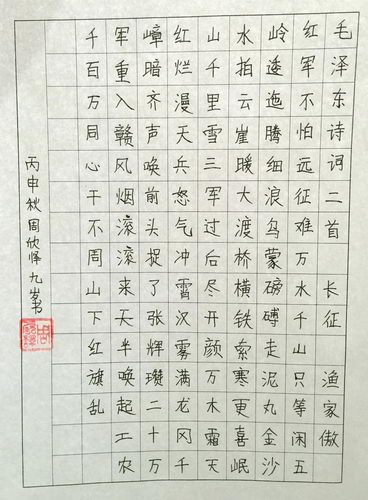 毛泽东诗词二首 长征 渔家傲
红军不怕远征难万水千山只等闲五
岭逶迤腾细浪乌蒙磅礴走泥丸金沙
水拍云崖暖大渡桥横铁索寒更喜岷
山千里雪三军过后尽开颜万木霜天
红烂漫天兵怒气冲霄汉雾满龙冈千
嶂暗齐声唤前头捉了张辉瓒二十万
军重入赣风烟滚滚来天半唤起工农
千百万同心干不周山下红旗乱
丙申秋周欣怿九岁书